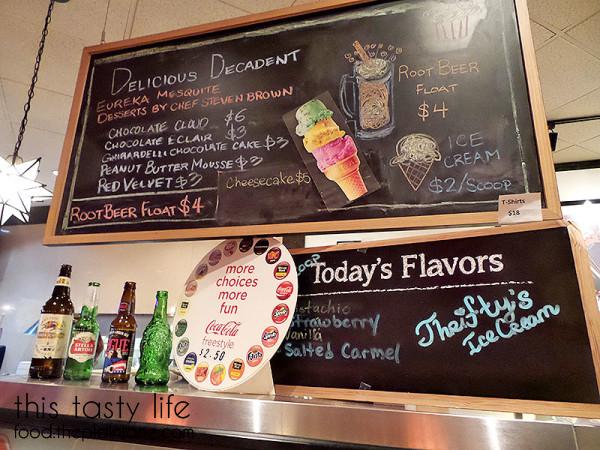 Delicious Decadent
Eureka Mesquite
Desserts by Chef Steven Brown
Chocolate Cloud $6
Chocolate Eclair $3
Ghirardelli Chocolate Cake $3
Peanut Butter Mousse $3
Red Velvet $3
Root Beer Float $4
Cheesecake $5
Root Beer
Float
$4
Ice
Cream
$2/Scoop
T-Shirts
$18
more
choices
more
fun
Coca-Cola
freestyle
$2.50
Today's Flavors
Strawberry
Vanilla
Salted Carmel
Thrifty's
Ice Cream
STELLA ARTOIS
this tasty life